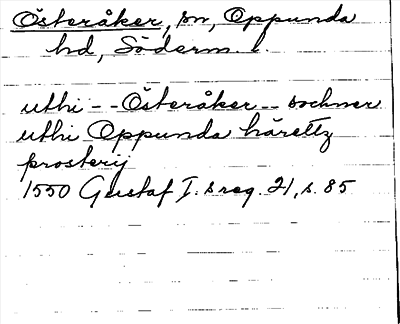 Österåker, sn, Oppunda
hd, Söderm. l.
uthi -- Österåker -- sochner
uthi Oppunda häretz
prosterij
1550 Gustaf I:s reg. 21, s. 85